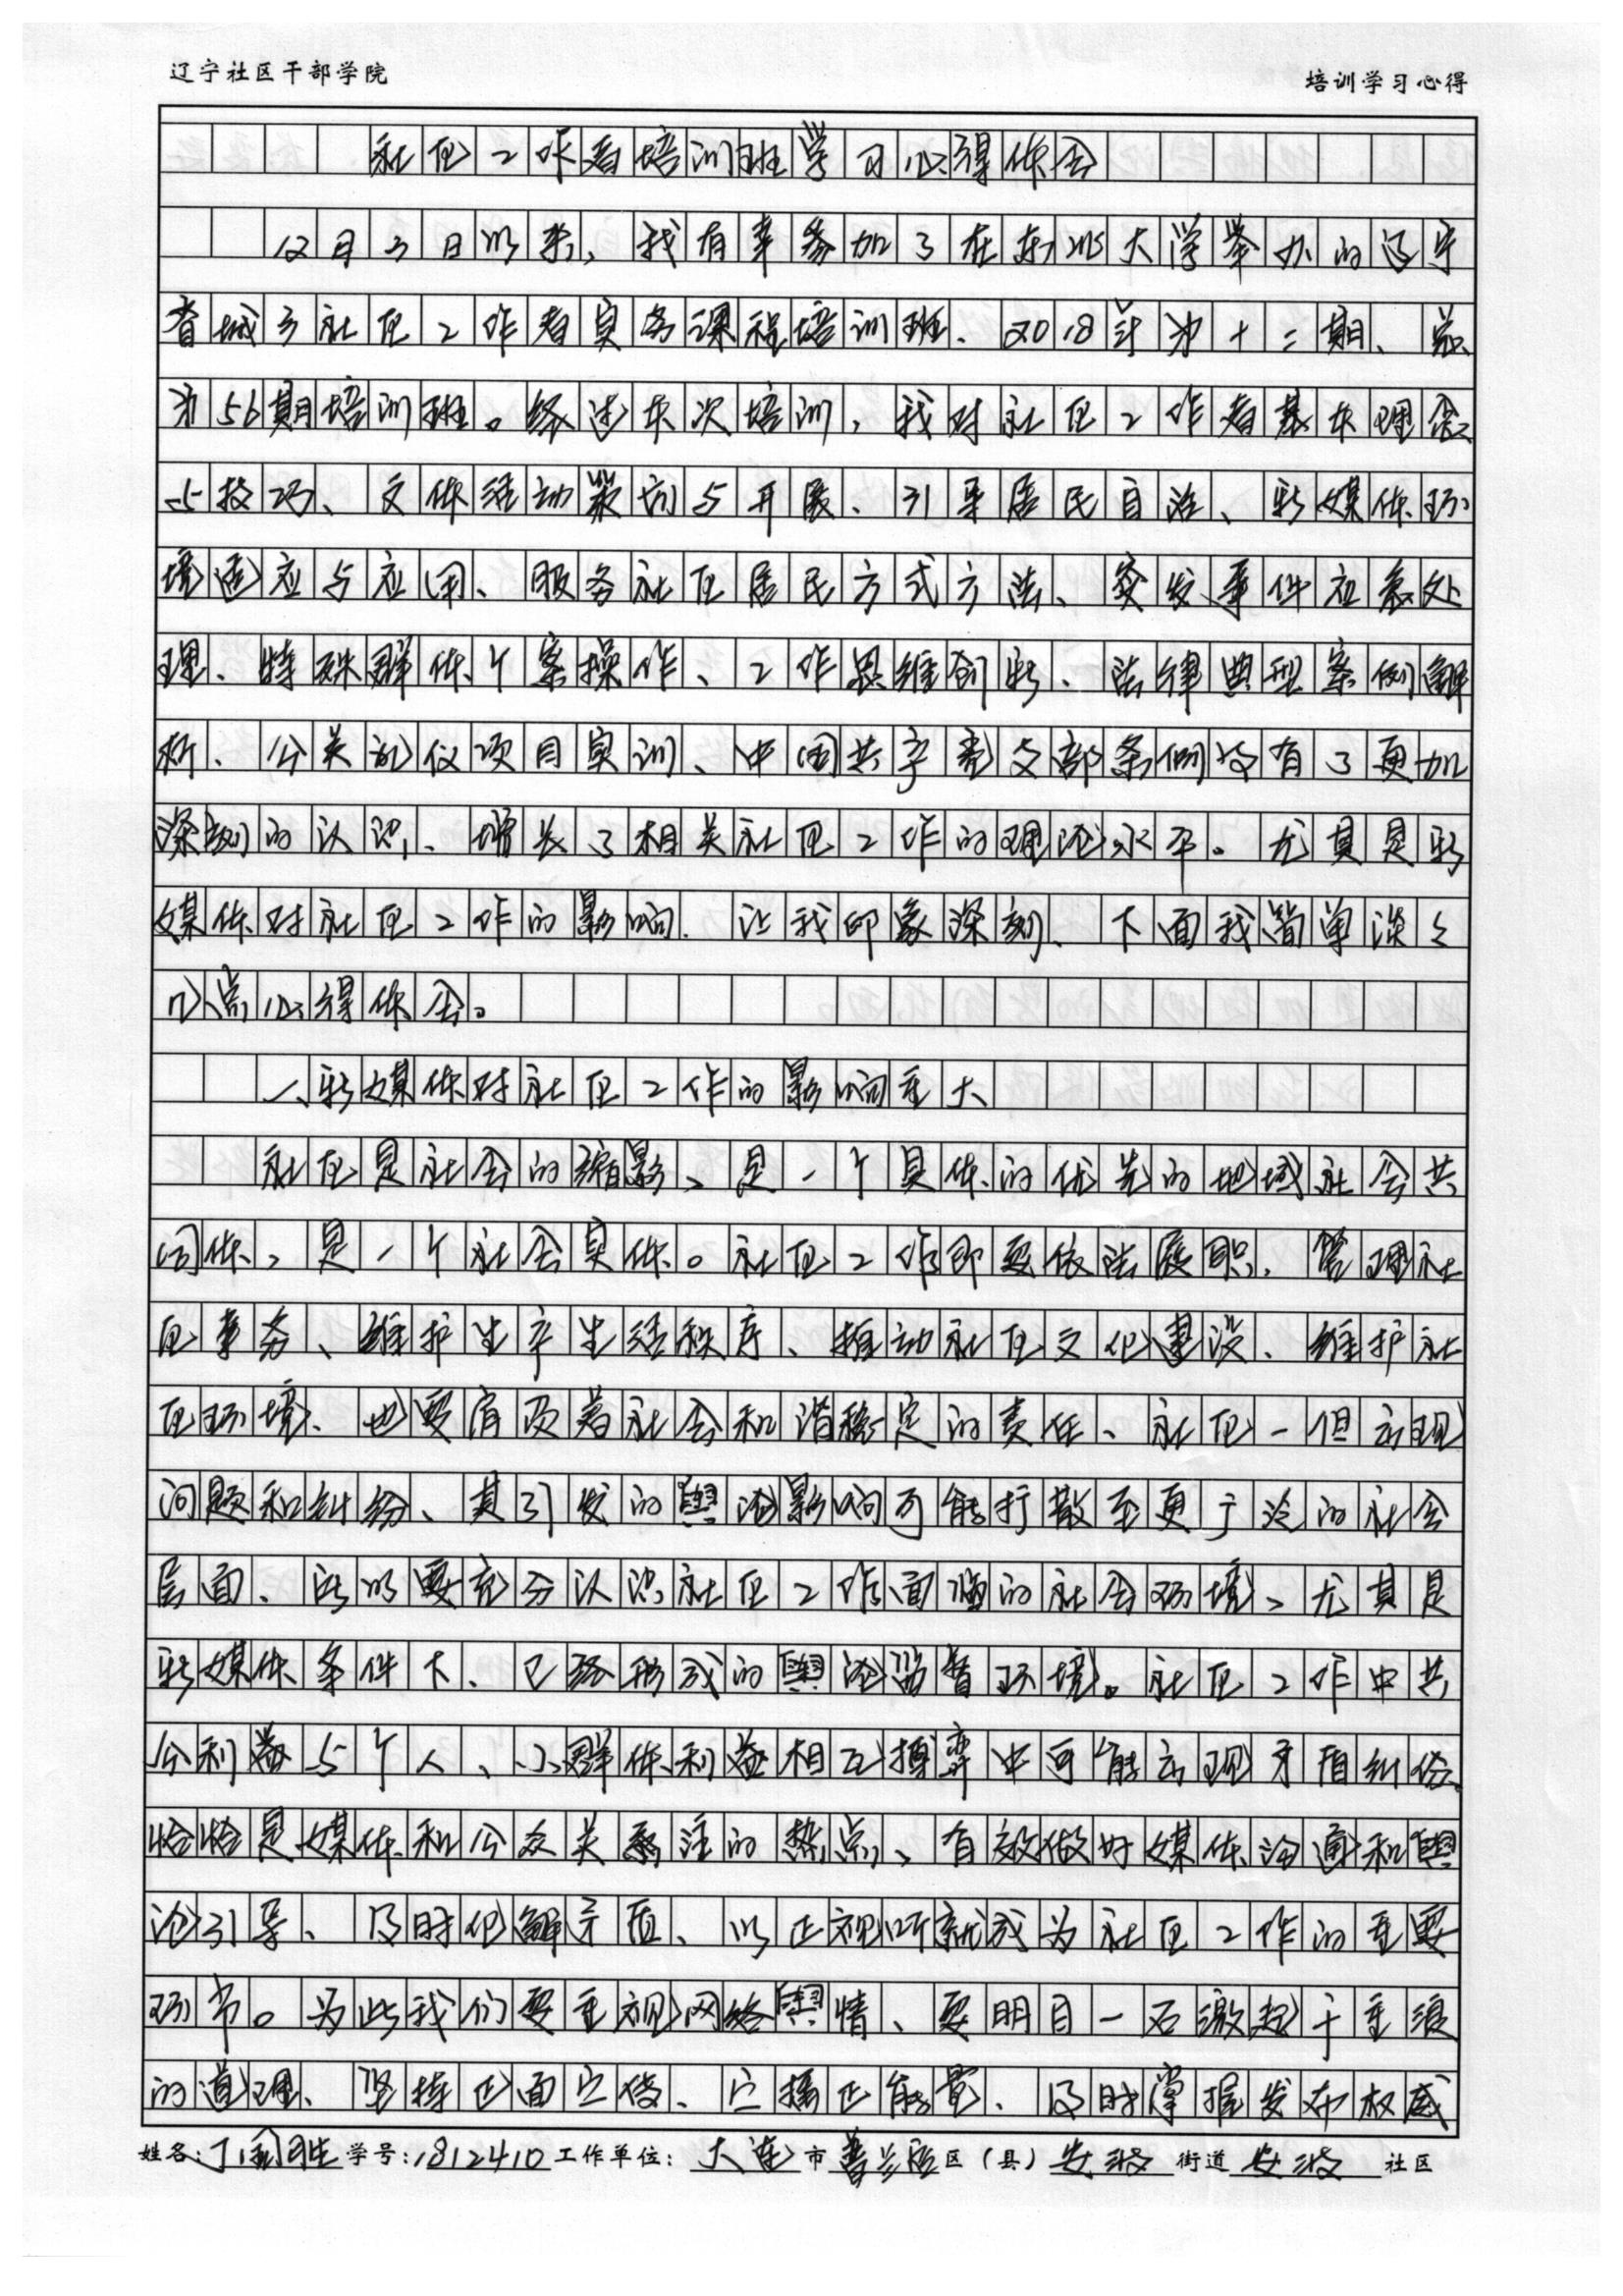 辽宁社区干部学院 培训学习心得
社区工作者培训班学习心得体会
12月3日以来，我有幸参加了在东北大学举办的辽宁
省城乡社区工作者实务课程培训班、2018年第十二期、总
第56期培训班。经过本次培训，我对社区工作者基本理念
与技巧、文体活动策划与开展、引导居民自治、新媒体环
境适应与应用、服务社区居民方式方法、突发事件应急处
理、特殊群体个案操作、工作思维创新、法律典型案例解
析、公关礼仪项目实训、中国共产党支部条例皆有了更加
深刻的认识、增长了相关社区工作的理论水平。尤其是新
媒体对社区工作的影响、让我印象深刻、下面我简单谈谈
几点心得体会。
一、新媒体对社区工作的影响重大
社区是社会的缩影，是一个具体的优先的地域社会共
同体，是一个社会实体。社区工作即要依法履职、管理社
区事务、维护生产生活秩序、推动社区文化建设、维护社
区环境、也要肩负着社会和谐稳定的责任、社区一但出现
问题和纠纷、其引发的舆论影响可能扩散至更广泛的社会
层面、所以要充分认识社区工作面临的社会环境，尤其是
新媒体条件下、已经形成的舆论监督环境。社区工作中共
公利益与个人、小群体利益相互搏弈中可能出现矛盾纠纷、
恰恰是媒体和公众关注的热点、有效做好媒体沟通和舆
论引导、及时化解矛盾、以正视听就成为社区工作的重要
环节。为此我们要重视网络舆情、要明目一石激起千重浪
的道理、坚持正面宣传、广播正能量、及时掌握发布权威
姓名：丁国胜 学号：1812410 工作单位：大连市普兰店区（县）安波街道安波社区